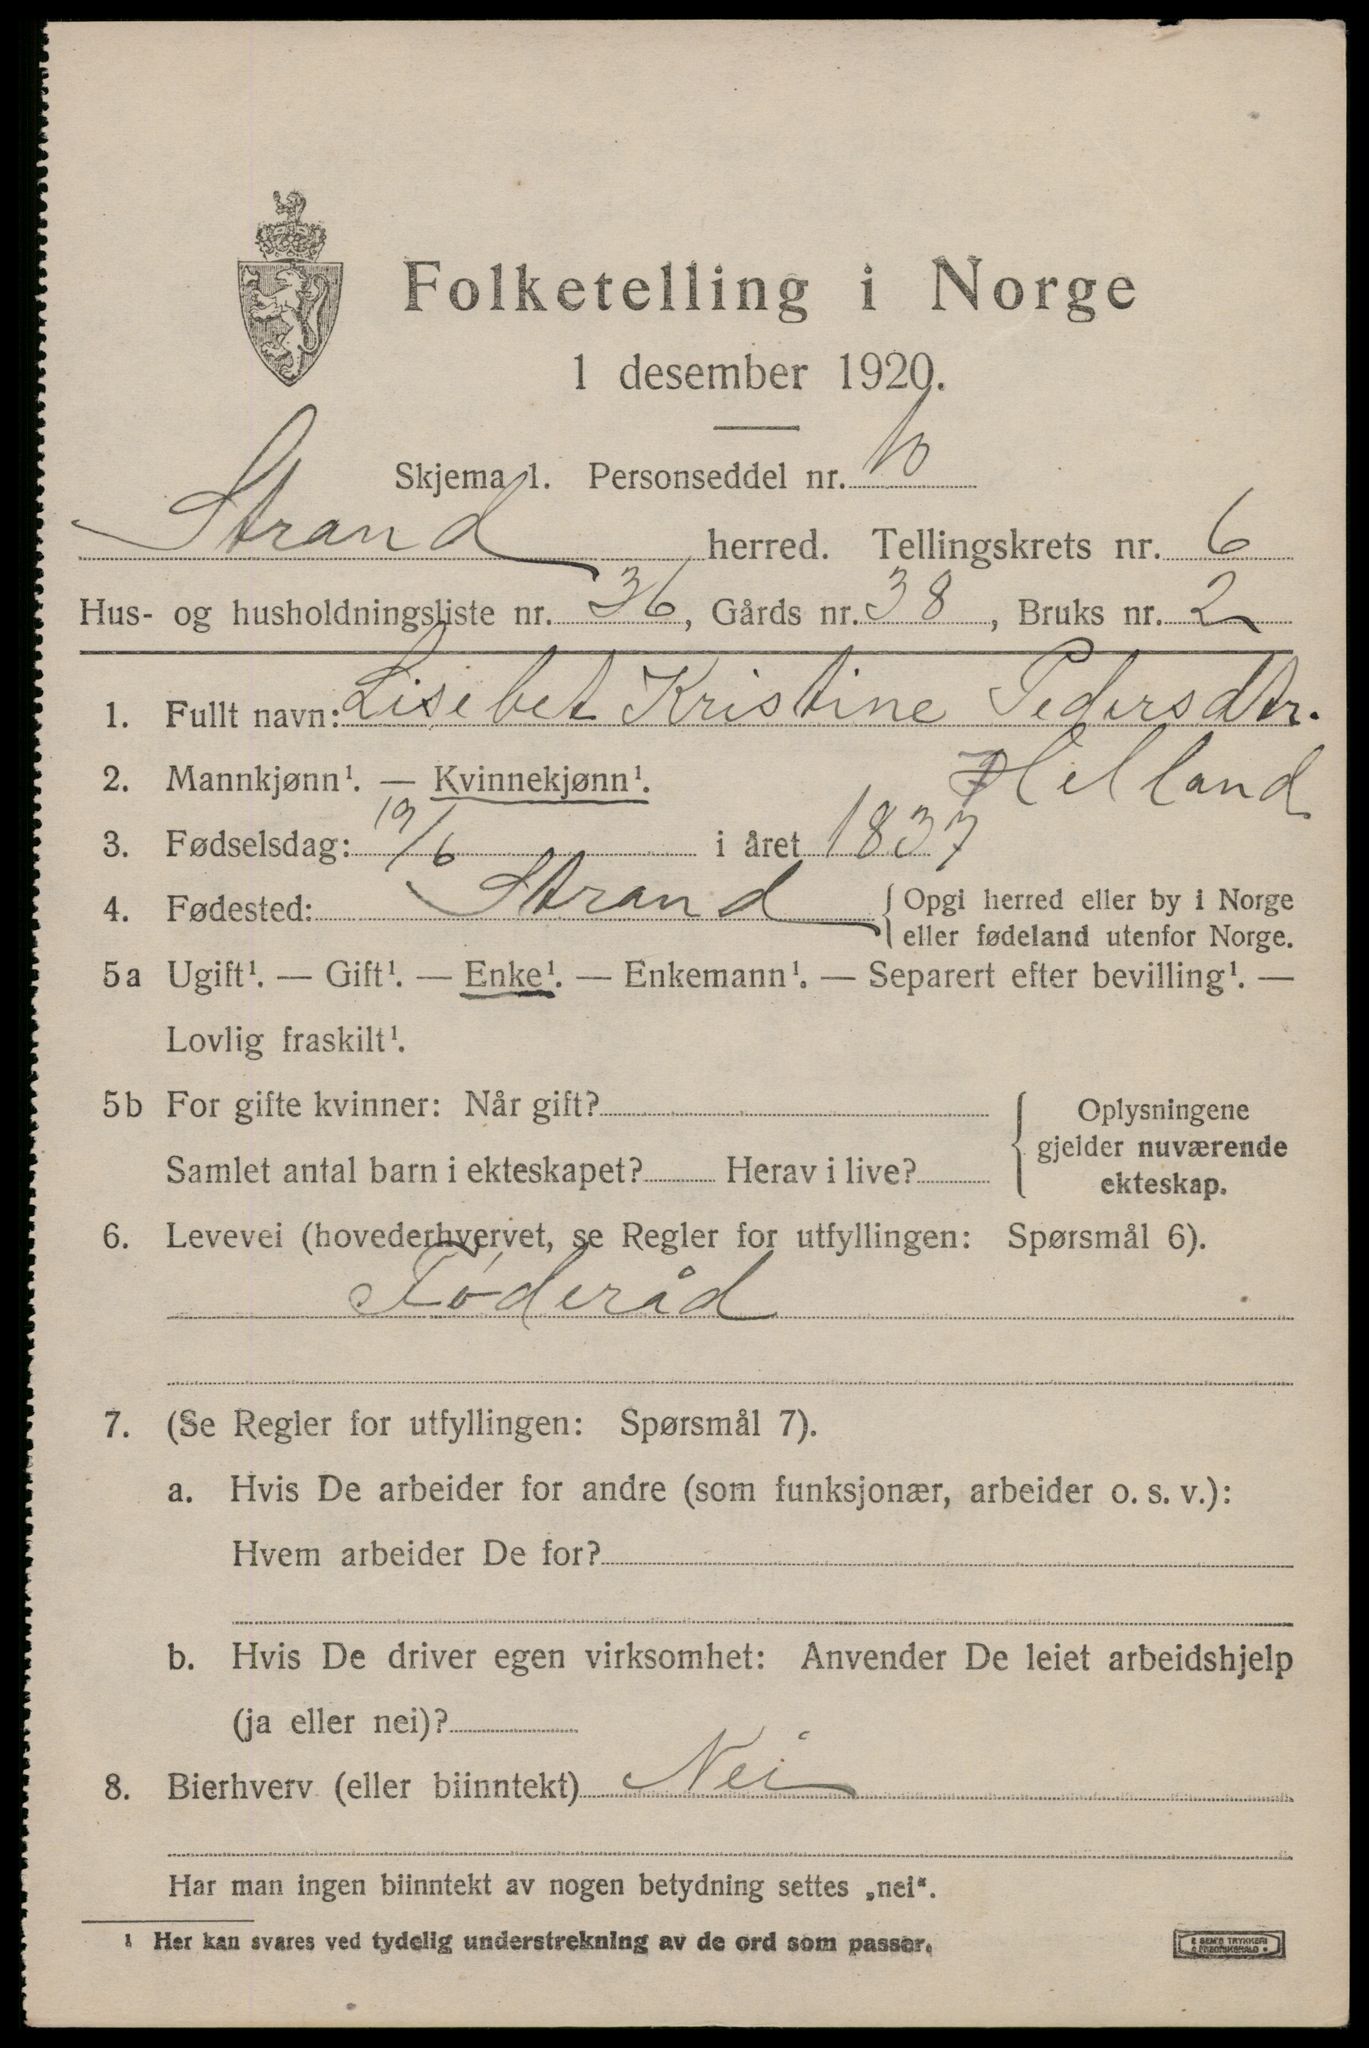 Folketelling i Norge
1 desember 1920.
Skjema 1. Personseddel nr. 10
Strand herred. Tellingskrets nr. 6
Hus- og husholdningsliste nr. 36, Gårds nr. 38, Bruks nr. 2
1. Fullt navn: Lisebet Kristine Pedersdtr.
Helland
2. Mannkjønn¹. — Kvinnekjønn¹.
3. Fødselsdag: 19/6 i året 1837
4. Fødested: Strand { Opgi herred eller by i Norge
eller fødeland utenfor Norge.
5a Ugift¹. — Gift¹. — Enke¹. — Enkemann¹. — Separert efter bevilling¹. —
Lovlig fraskilt¹.
5b For gifte kvinner: Når gift?
Samlet antal barn i ekteskapet? Herav i live?
Oplysningene
gjelder nuværende
ekteskap.
6. Levevei (hovederhvervet, se Regler for utfyllingen: Spørsmål 6).
Føderåd
7. (Se Regler for utfyllingen: Spørsmål 7).
a. Hvis De arbeider for andre (som funksjonær, arbeider o. s. v.):
Hvem arbeider De for?
b. Hvis De driver egen virksomhet: Anvender De leiet arbeidshjelp
(ja eller nei)?
8. Bierhverv (eller biinntekt) Nei
Har man ingen biinntekt av nogen betydning settes „nei“.
¹ Her kan svares ved tydelig understrekning av de ord som passer.
E SEM'S TRYKKERI
FREDRIKSHALD